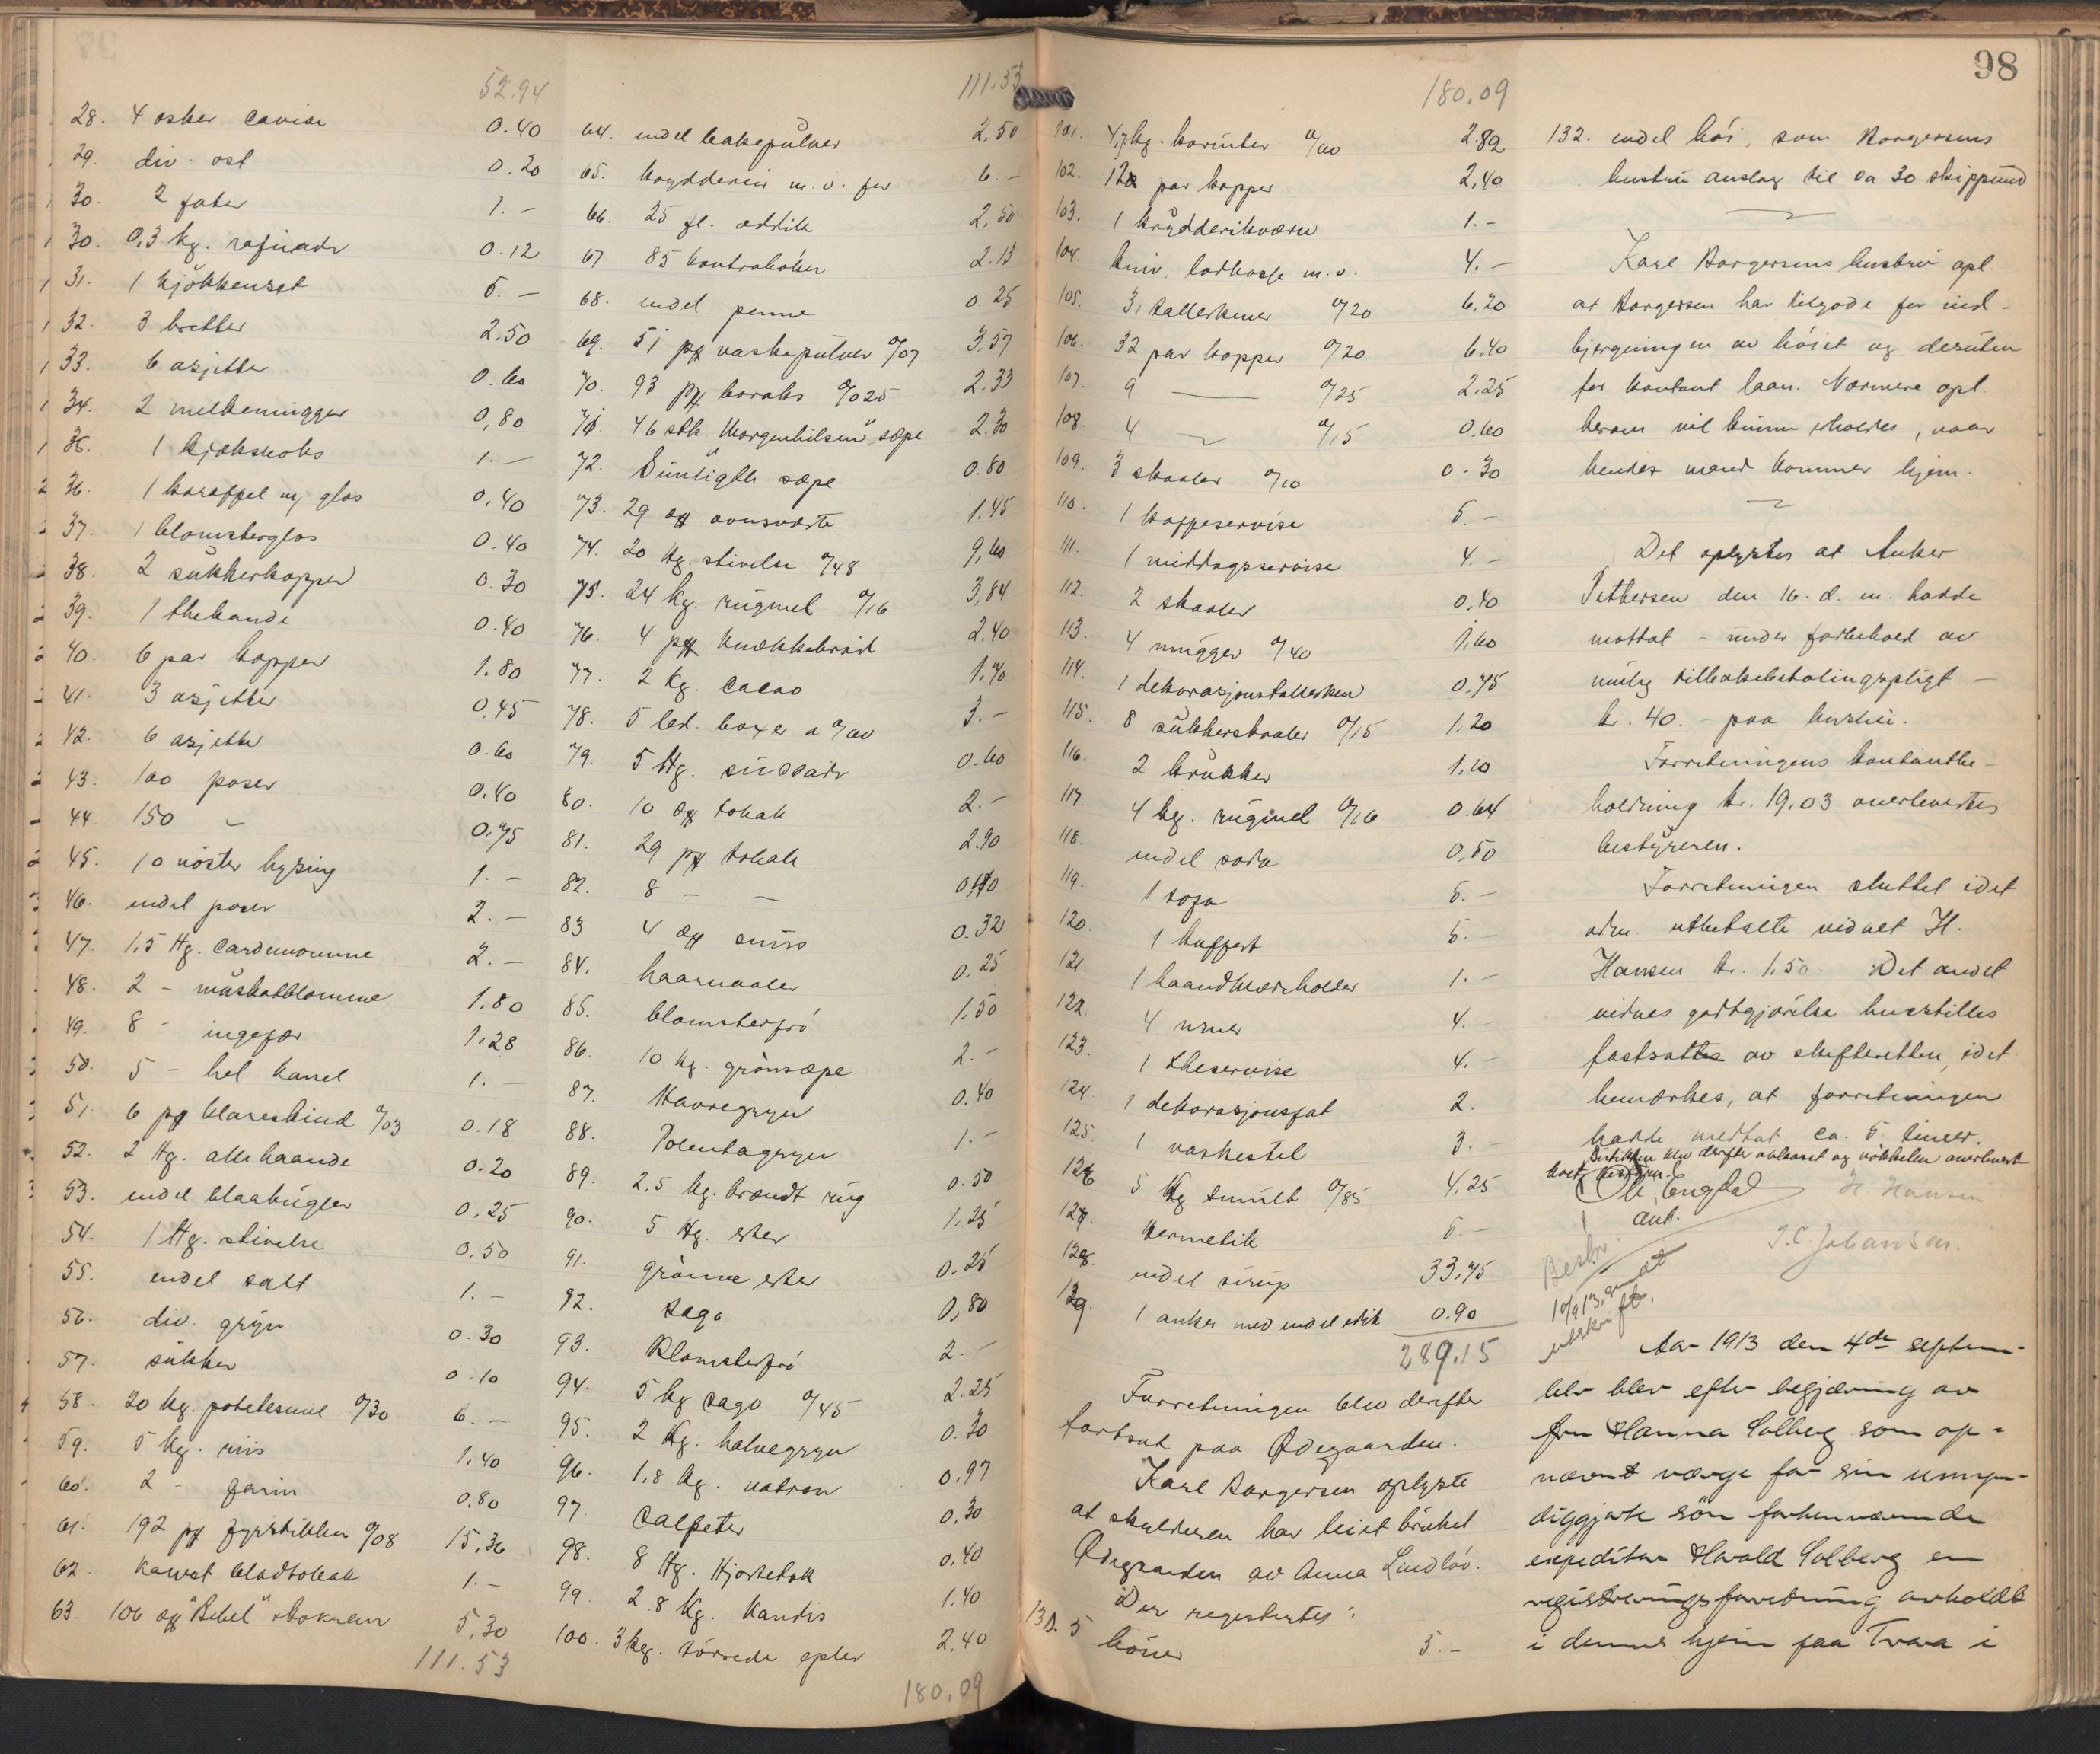 98
52.94
28. 4 esker caviar 0.40
29. div. ost 0.20
30. 2 fater 1.-
30. 0,3 kg. rafinade 0.12
31. 1 kjøkkenset 5.-
32. 3 bretter 2.50
33. 6 asjetter 0.60
34. 2 melkemugger 0,80
35. 1 kjækskoks 1.-
36. 1 karaffel og glas 0,40
37. 1 blomsterglas 0.40
38. 2 sukkerkopper 0.30
39. 1 thekande 0.40
40. 6 par kopper 1.80
41. 3 asjetter 0.45
42. 6 asjetter 0.60
43. 100 poser 0.40
44. 150 - 0.75
45. 10 nøster hyssing 1.-
46. endel poser 2.-
47. 1,5 Hg. cardemomme 2.-
48. 2 - muskatblomme 1,80
49. 8 - ingefær 1,28
50. 5 - hel kanel 1.-
51. 6 pk klareskind 0/03 0.18
52. 2 Hg. allehaande 0.20
53. endel blaakugler 0.25
54. 1 Hg. stivelse 0.50
55. endel salt 1.-
56. div. gryn 0.30
57. sukker 0.10
58. 20 kg. potetesmel 0/30 6.-
59. 5 kg. riis 1,40
60. 2 - farin 0.80
61. 192 pk fyrstikker 0/08 15,36
62. karvet bladtobak 1.-
63. 106 æsk "Bebel" 5,30
111.53
111.53
64. endel bakepulver 2,50
65. krydderier m.v. for 6.-
66. 25 fl. eddik 2,50
67. 85 kontrabøker 2.13
68. endel penne 0.25
69. 51 pk vaskepulver 0/07 3,57
70. 93 pk boraks 0/025 2.33
71. 46 stk. "Morgenhilsen" sæpe 2.30
72. Sunligth sæpe 0.80
73. 29 æsk ovnsværte 1.45
74. 20 kg. stivelse 0/48 9,60
75. 24 kg. rugmel 0/16 3,84
76. 4 pk knækkebrød 2.40
77. 2 kg. cacao 1.70
78. 5 led. boxer a 0/60 3.-
79. 5 Hg. succade 0.60
80. 10 æsk tobak 2.-
81. 29 pk tobak 2.90
82. 8 - -
83 4 æsk snus 0.32
84. haarnaaler 0.25
85. blomsterfrø 1.50
86. 10 kg. grønsæpe 2.-
87. Havregryn 0.40
88. Polentagryn 1.-
89. 2,5 kg. brændt rug 0.50
90. 5 Hg. erter 1.25
91. grønne erter 0.25
92. Sago 0,80
93. Blomsterfrø 2.-
94. 5 kg sago 0/45 2.25
95. 2 kg. halvegryn 0.30
96. 1,8 kg. natron 0.97
97. Salpeter 0.30
98. 8 Hg. Hjortetak 0.40
99. 2.8 kg. kandis 1.40
100. 3 kg. tørrede epler 2,40
180.09
180.09
101. 4,7 kg. korinter 0/60 2.82
102. 12 par kopper 2,40
103. 1 krydderikværn 1.-
104. kniv, m.v. 4.-
105. 31 tallerkener 0/20 6,20
106. 32 par kopper 0/20 6.40
107. 9 — 0/25 2.25
108. 4 — 0/15 0.60
109. 3 skaaler 0/10 0.30
110. 1 kaffeservise 5.-
111. 1 middagsservise 4.-
112. 2 skaaler 0,40
113. 4 mugger 0/40 1,60
114. 1 dekorasjonstallerken 0.75
115. 8 sukkerskaaler 0/15 1.20
116. 2 krukker 1.10
117. 4 kg. rugmel 0/16 0.64
118. endel soda 0,50
119. 1 sofa 5.-
120. 1 kuffert 5.-
121. 1 haandklædeholder 1.-
122. 4 urner 4.-
123. 1 theservise 4.-
124. 1 dekorasjonsfat 2.
125. 1 vaskestel 3.-
126 5 kg smult 0/85 4,25
127. Hermetik 5.-
128. endel sirup 33,75
129. 1 anker med endel edik 0.90
289.15
Forretningen blev derefter
fortsat paa Ødegaarden.
Karl Borgersen oplyste
at skylderen har leiet bruket
Ødegaarden av Anna Lindløv.
Der registertes:
130. 5 høner 5.-
132. endel høi, som Borgersens
hustru anslog til ca 30 skippund
Karl Borgersens hustru opl.
at Borgersen har tilgode for ind-
bjergningen av høiet og desuten
for kontant laan. Nærmere opl.
herom vil kunne erholdes, naar
hendes mand kommer hjem.
Det oplystes at Anker
Pettersen den 16. d. m. hadde
mottat - under forbehold av
mulig tilbakebetalingspligt -
kr. 40. - paa husleie.
Forretningens kontantbe-
holdning kr. 19,03 overlevertes
bestyreren.
Forretningen sluttet idet
adm. utbetalte vidnet H.
Hansen kr. 1,50. Det andet
vidnes godtgjørelse henstilles
fastsattes av skifteretten, idet
bemerkes, at forretningen
hadde medtat ca. 5 timer.
Butikken blev derefter avlaaset og nøkkelen overlevert
bestyreren.
Ole Engdal H Hansen
aut.
J.C. Johansen.
Beskr.
10/9 13.
utskrift.
Aar 1913 den 4de septem-
ber blev efter begjæring av
fru Hanna Solberg som op-
nævnt værge for sin umyn-
diggjorte søn forhenværende
expeditør Harald Solberg en
registreringsforretning avholdt
i dennes hjem paa Tvara i